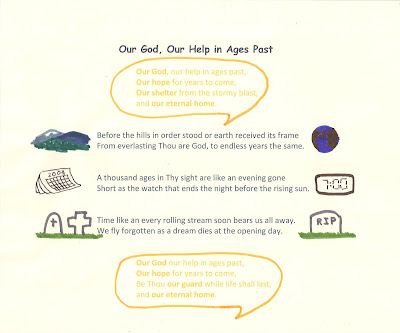 Our God, Our Help in Ages Past
Our God, our help in ages past,
Our hope for years to come,
Our shelter from the stormy blast,
and our eternal home.
Before the hills in order stood or earth received its frame
From everlasting Thou are God, to endless years the same.
2008
A thousand ages in Thy sight are like an evening gone
Short as the watch that ends the night before the rising sun.
7:00
Time like an every rolling stream soon bears us all away.
We fly forgotten as a dream dies at the opening day.
RIP
Our God our help in ages past,
Our hope for years to come,
Be Thou our guard while life shall last,
and our eternal home.